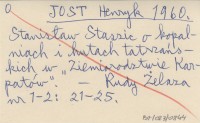 JOST Henryk 1960.
Stanisław Staszic o kopal-
niach i hutach tatrzań-
skich w "Ziemiorodstwie Kar-
patów". — Rudy Żelaza
nr 1-2: 21-25.